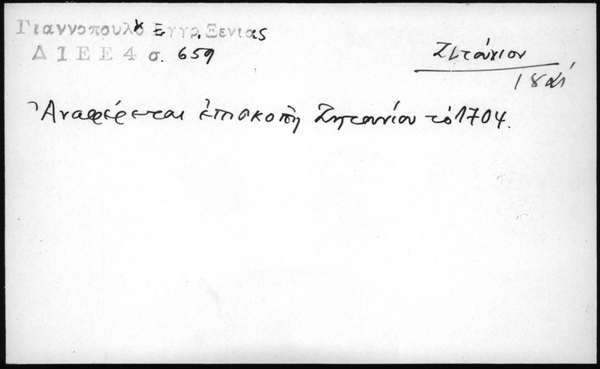 Γιαννοπουλ Εγγρ. Ξενιας
Δ Ι Ε Ε 4 σ. 659
Ζητούνιον
Ἀναφέρεται ἐπισκοπὴ Ζητουνίου τὸ 1704.